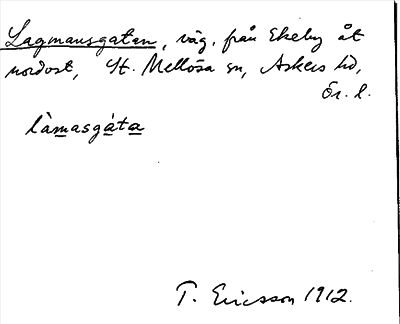 Lagmansgatan, väg, från Ekeby åt
nordost, St. Mellösa sn, Askers hd,
Ör. l.
làmasgáta
T. Ericsson 1912.